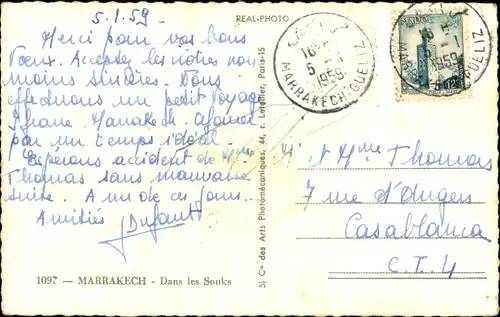 5.1.59
REAL-PHOTO
Merci pour vos bons
Vœux. Acceptez les nôtres non
moins sincères. Nous
effectuons un petit voyage
Ifrane. Marrakech. Agadir
par un temps idéal.
Espérons accident de Mme
Thomas sans mauvaise
suite. A un de ces jours.
Amitiés Dufault
1097 — MARRAKECH - Dans les Souks
Cie des Arts Photomécaniques, 44, r. Letellier, Paris-15
MARRAKECH-GUELIZ
16
5 - 1
1959
MAROC
16
5 - 1
1959
GUELIZ
Mr et Mme Thomas
7 rue d'Angers
Casablanca
C.T.4